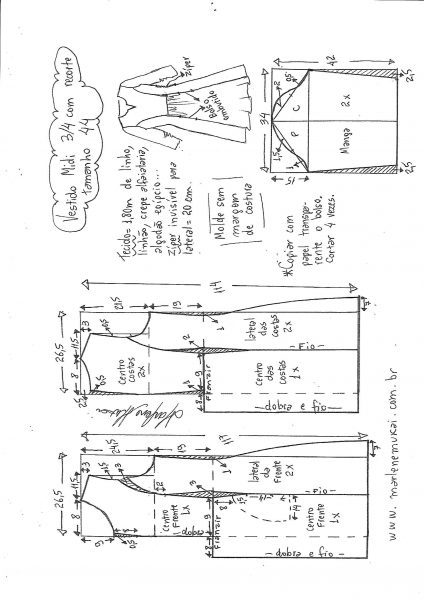 Vestido Midi 3/4 com recorte
tamanho 44
Tecido = 1,80m de linho,
linhão, crepe alfaiataria,
algodão egípcio...
Zíper invisível para
lateral = 20 cm.
Zíper
Bolso
embutido
Molde sem
margem
de costura
*Copiar com
papel transpa-
rente o bolso.
Cortar 4 vezes.
42
2,5
34
2
0,5
C
P
1,5
1
2x
Manga
15
2,5
114
21,5
19
26,5
11,5
3
0,5
8
2,5
0,5
2
1
Centro
costas
2x
lateral das
costas
2x
9
Franzir
8
- Fio -
Centro
das
costas
1x
dobra e fio
7
113
24,5
19
26,5
11,5
3
3
3
8
2
1
6
0,5
8
Centro
Frente
1x
dobra
lateral
da
Frente
2x
9
Franzir
8
8
1,5
14
Fio
Centro
Frente
1x
- dobra e fio -
7
www.marlenemukai.com.br